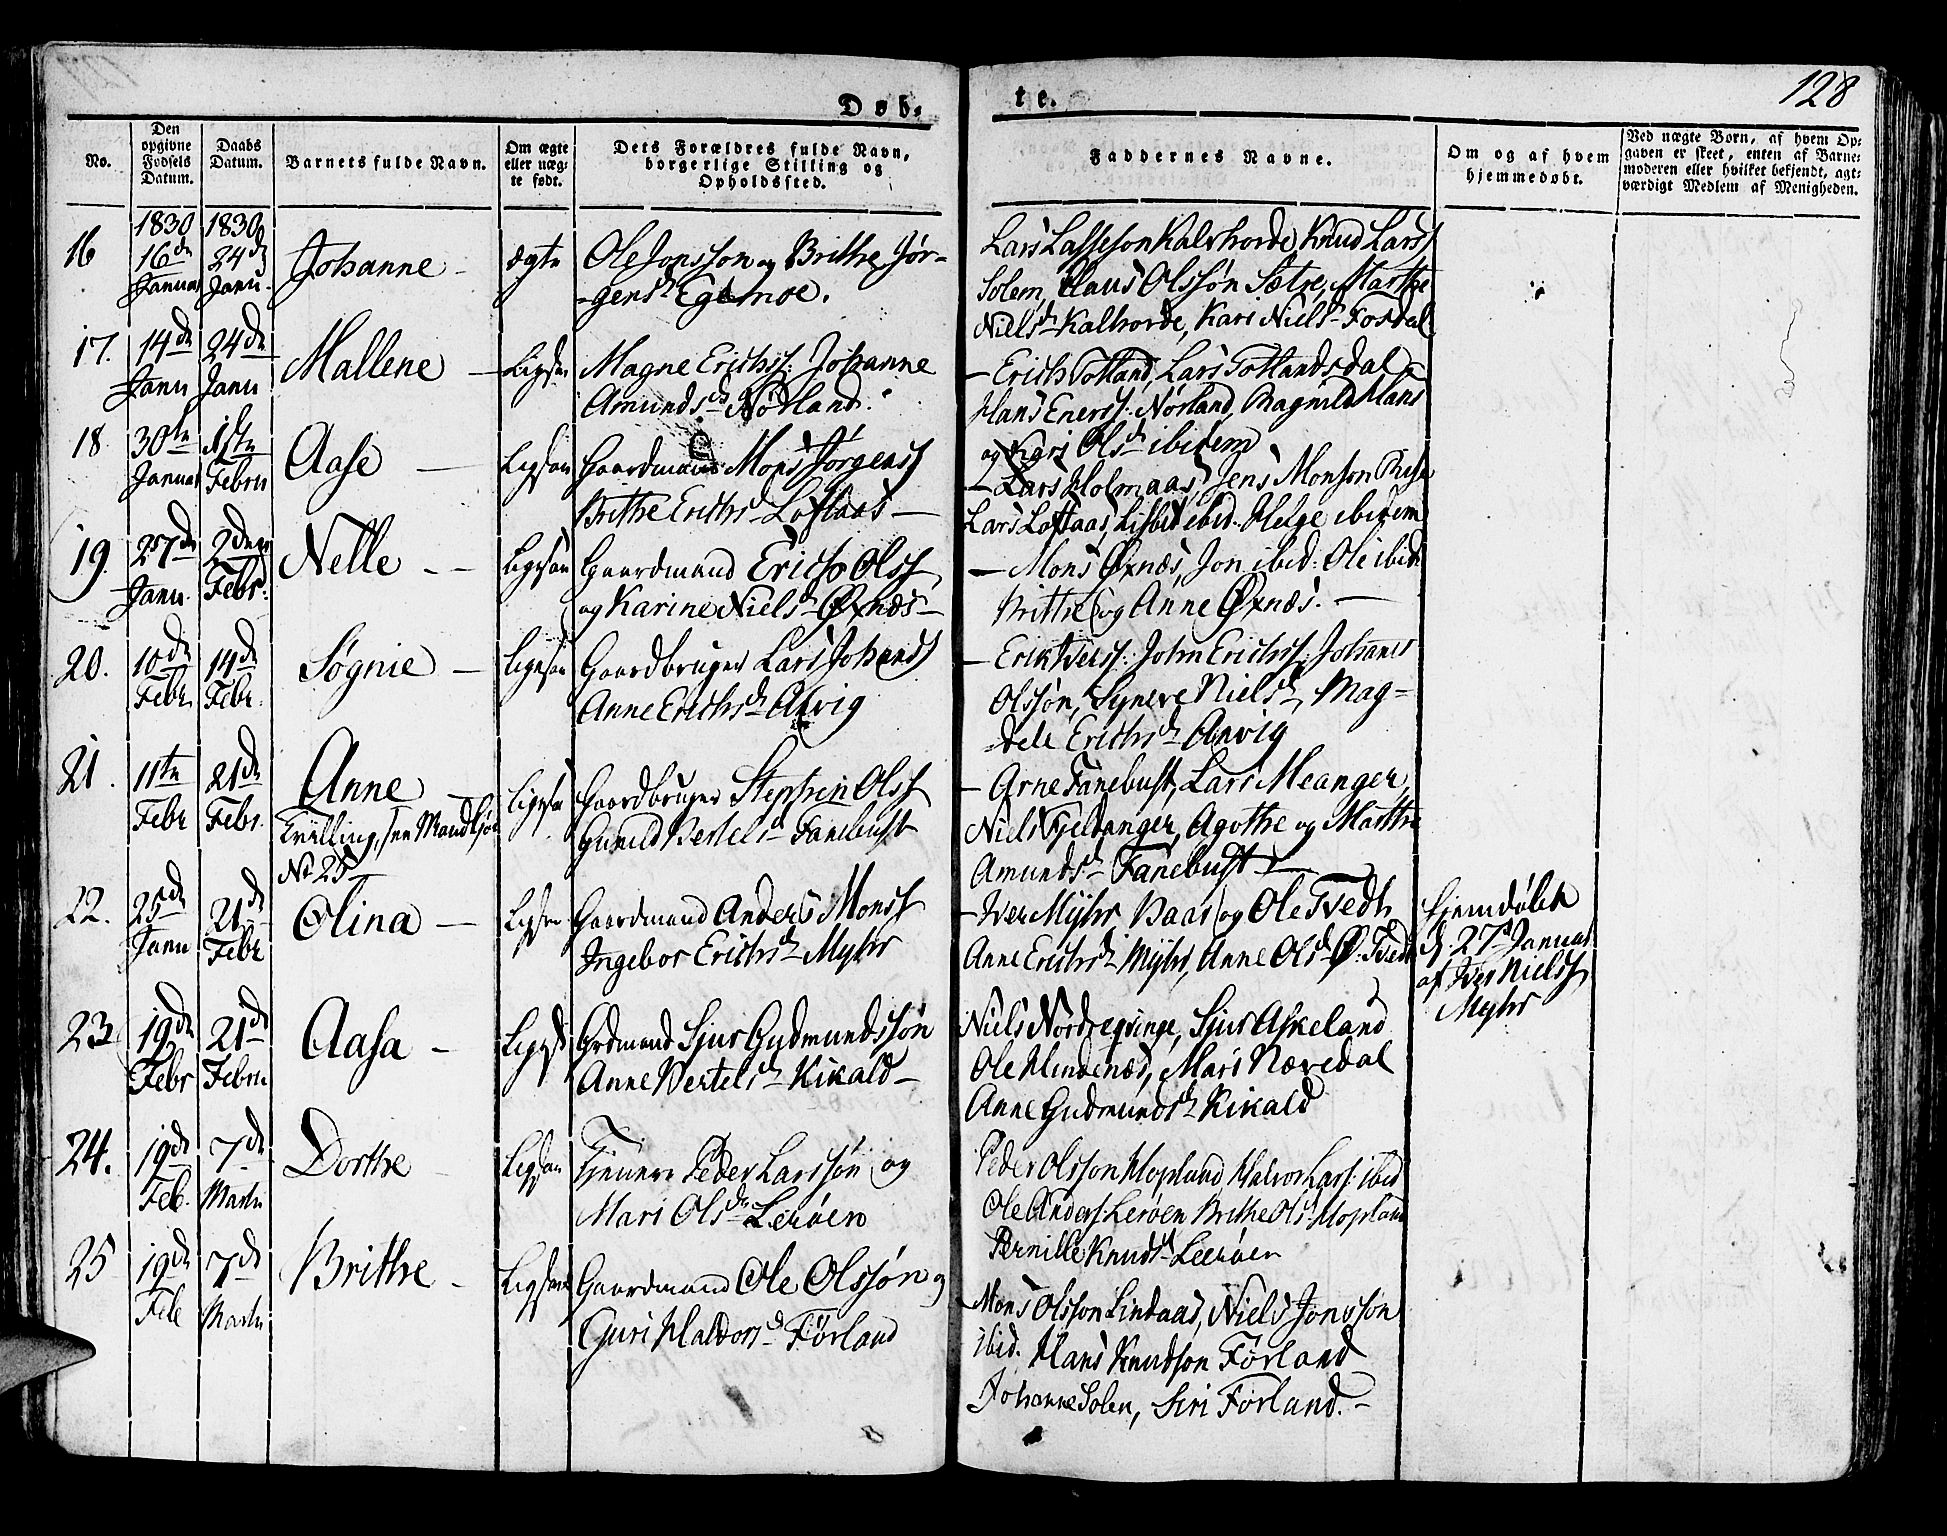 Døb-
te.
128
No.
Den
opgivne
Fødsels
Datum.
Daabs
Datum.
Barnets fulde Navn.
Om ægte
eller uæg-
te født.
Dets Forældres fulde Navn,
borgerlige Stilling og
Opholdssted.
Faddernes Navne.
Om og af hvem
hjemmedøbt.
Ved uægte Børn, af hvem Op-
gaven er skeet, enten af Barne-
moderen eller hvilket bekjendt, agt-
værdigt Medlem af Menigheden.
16
1830
16de
Januar
1830
24de
Janu.
Johanne -
ægte
Ole Jonsson og Brithe Jør-
-gensd Egemoe.
Lars Lasseson Kalvhorde, Knud Larss
Solem, Claus Olssøn Sætre, Marthe
Nielsd Kalhorde, Kari Nielsd Fosdal
17.
14de
Janu
24de
Janu
Mallene -
Ligesen
Magne Erichss: Johanne
Amundsd Nødland.
- Erich Totland, Lars Totlandsdal
Hans Enerss: Nørland, Ragnild Hans
og Kari Olsd ibidem
18
30te
Januar
1ste
Febru
Aase -
Ligesaa
Gaardmand Mons Jørgenss
Brithe Erichsd Loftaas -
- Lars Holmaas, Jens Monson Risa
Lars Loftaas, Lisbet ibid. Helge ibidem
19.
27de
Janu.
2den
Febr.
Nelle - -
Ligesaa
Gaardmand Erich Olss
og Karine Nielsd Øxnæs -
- Mons Øxnæs, Jon ibid: Ole ibid
Brithe og Anne Øxnæs. -
20.
10de
Febr
14de
Febr.
Søgnie -
Ligesaa
Gaardbruger Lars Johanss
Anne Erichsd Alvig
- Erik Iverss: John Erichss: Johanes
Olssøn, Syneve Nielsd, Mag-
dele Erichsd Alvig
21.
11te
Febr
21de
Febr.
Anne -
Tvilling, see Mandkjøn
No 25
Ligesaa
Gaardbruger Stephen Olss
Gunild Bertelsd Fanebust
- Arne Fanebust, Lars Meanger,
Niels Kjeldanger, Agothe og Marthe
Amundsd Fanebust -
22.
25de
Janu
21de
Febr
Olina -
Ligesaa
Gaardmand Anders Monss
Ingebor Erichsd Myhr
- Iver Myhr Haas og Ole Tvedt
Anne Erichsd Myhr, Anne Olsd Ø: Tvedt
hjemdøbt
d. 27de Januar
af Iver Nielss
Myhr
23
19de
Febr
21de
Febru
Aasa -
Ligesaa
Grdmand Sjur Gudmundssøn
Anne Bertelsd Kikald -
Niels Nordreqvinge, Sjur Askeland
Ole Hindenæs, Mari Nævedal
Anne Gudmundsd Kikald
24.
19de
Feb.
7de
Marts
Dorthe
Ligesaa
Tjenere Peder Larssøn og
Mari Olsd Lerøen
Peder Olsson Hopland Halvor Larss: ibid
Ole Anderss Lerøen Brithe Olsd Hopland
Pernille Knudsd Leerøen
25
19de
Feb
7de
Marts
Brithe -
Ligesaa
Gaardmand Ole Olssøn og
Guri Haldorsd Førland
Mons Olsson Lindaas, Niels Jonsson
ibid. Hans Knudson Førland
Johanne Solem, Siri Førland. -